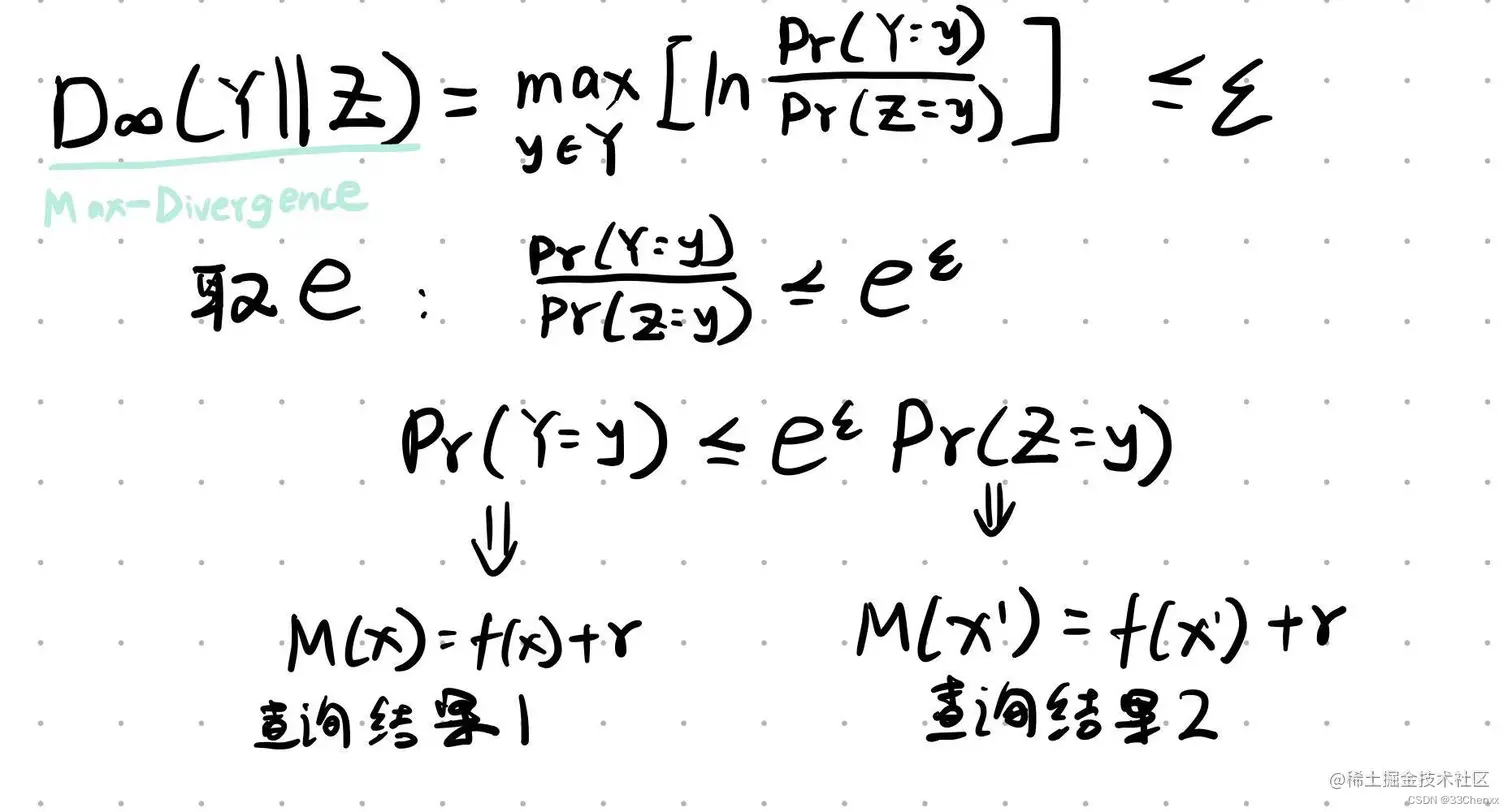 D∞(Y||Z) = max y∈Y [ln Pr(Y=y) / Pr(Z=y)] ≤ ε
Max-Divergence
取e : Pr(Y=y) / Pr(Z=y) ≤ e^ε
Pr(Y=y) ≤ e^ε Pr(Z=y)
⇓ ⇓
M(x) = f(x)+r M(x') = f(x')+r
查询结果1 查询结果2
@稀土掘金技术社区
CSDN @33Chenxx